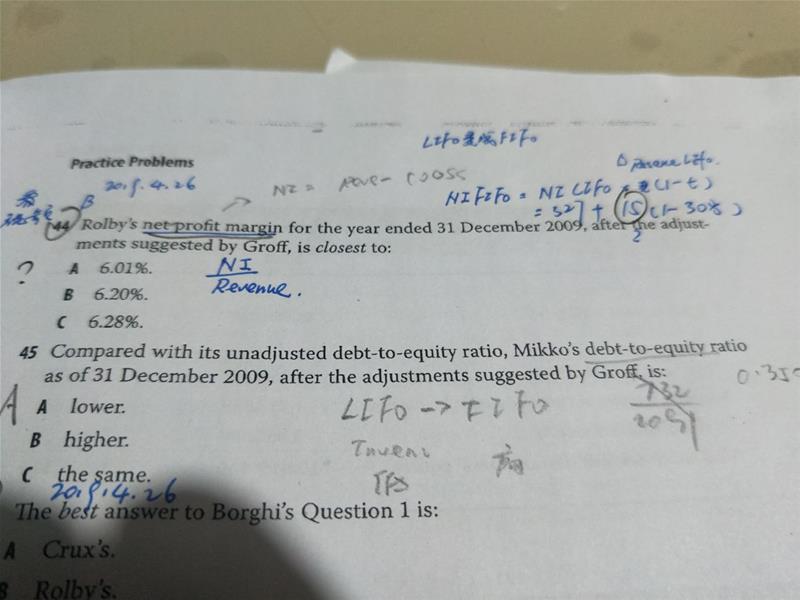 LIFO变成FIFO
Practice Problems
2019.4.26
NI = Reve- COGS
Δ Reserve LIFO.
NI FIFO = NI LIFO + (1-t)
= 327 + 15 (1-30%)
2
B
44 Rolby's net profit margin for the year ended 31 December 2009, after the adjust-
ments suggested by Groff, is closest to:
?
A 6.01%.
NI
B 6.20%.
Revenue.
C 6.28%.
45 Compared with its unadjusted debt-to-equity ratio, Mikko's debt-to-equity ratio
as of 31 December 2009, after the adjustments suggested by Groff, is:
A
A lower.
LIFO → FIFO
732
0.35
B higher.
Inven
C the same.
2019.4.26
The best answer to Borghi's Question 1 is:
A Crux's.
B Rolby's.